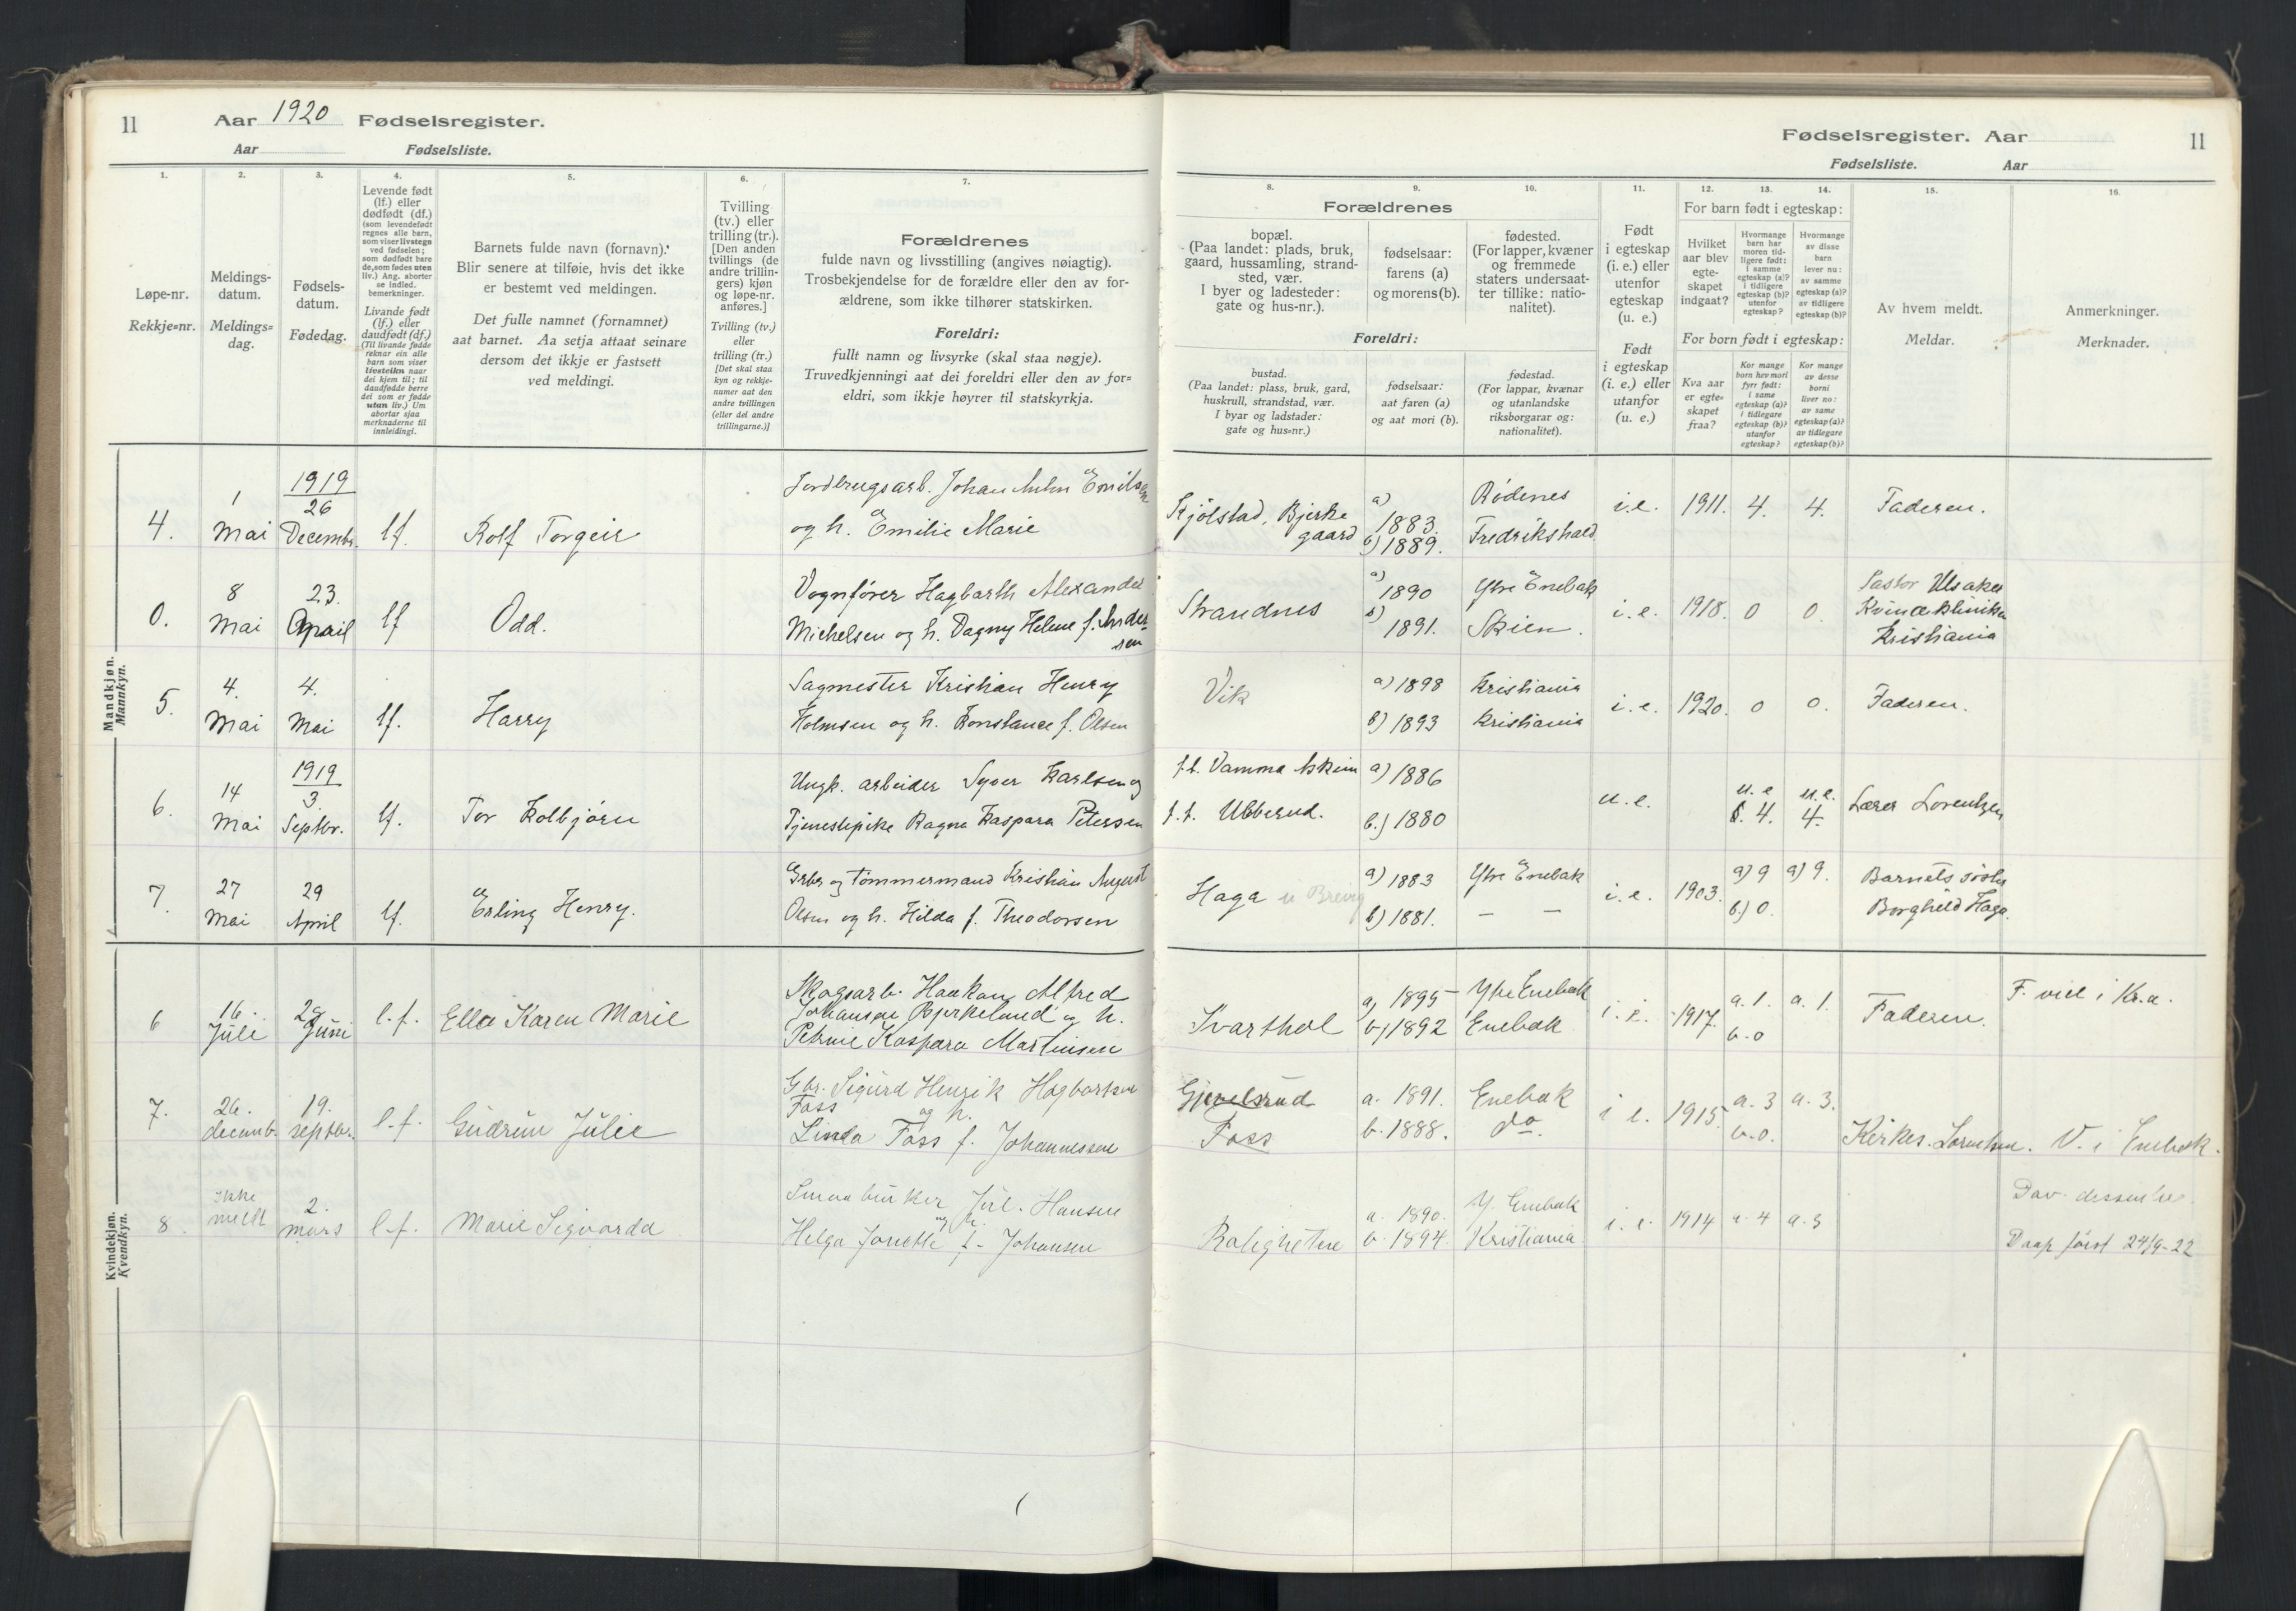 11 Aar 1920 Fødselsregister.
Aar Fødselsliste.
Fødselsregister. Aar 11
Fødselsliste. Aar
1.
Løpe-nr.
Rekkje=nr.
2.
Meldings-
datum.
Meldings=
dag.
3.
Fødsels-
datum.
Fødedag.
4.
Levende født
(lf.) eller
dødfødt (df.)
(som levendefødt
regnes alle barn,
som viser livstegn
ved fødselen;
som dødfødt bare
de, som fødes uten
liv.) Ang. aborter
se indled.
bemerkninger.
Livande født
(lf.) eller
daudfødt (df.)
(Til livande fødde
reknar ein alle
barn som viser
livsteikn naar
dei kjem til; til
daudfødde berre
dei som er fødde
utan liv.) Um
abortar sjaa
merknaderne til
innleidingi.
5.
Barnets fulde navn (fornavn).
Blir senere at tilføie, hvis det ikke
er bestemt ved meldingen.
Det fulle namnet (fornamnet)
aat barnet. Aa setja attaat seinare
dersom det ikkje er fastsett
ved meldingi.
6.
Tvilling
(tv.) eller
trilling (tr.).
[Den anden
tvillings (de
andre trillin-
gers) kjøn
og løpe-nr.
anføres.]
Tvilling (tv.)
eller
trilling (tr.)
[Det skal staa
kyn og rekkje-
numer aat den
andre tvillingen
(eller dei andre
trillingarne.)]
7.
Forældrenes
fulde navn og livsstilling (angives nøiagtig).
Trosbekjendelse for de forældre eller den av for-
ældrene, som ikke tilhører statskirken.
Foreldri:
fullt namn og livsyrke (skal staa nøgje).
Truvedkjenningi aat dei foreldri eller den av for=
eldri, som ikkje høyrer til statskyrkja.
8. 9. 10.
Forældrenes
bopæl.
(Paa landet: plads, bruk,
gaard, hussamling, strand-
sted, vær.
I byer og ladesteder:
gate og hus-nr.).
fødselsaar:
farens (a)
og morens (b).
fødested.
(For lapper, kvæner
og fremmede
staters undersaat-
ter tillike: natio-
nalitet).
Foreldri:
bustad.
(Paa landet: plass, bruk, gard,
huskrull, strandstad, vær.
I byar og ladstader:
gate og hus=nr.)
fødselsaar:
aat faren (a)
og aat mori (b).
fødestad.
(For lappar, kvænar
og utanlandske
riksborgarar og:
nationalitet).
11.
Født
i egteskap
(i. e.) eller
utenfor
egteskap
(u. e.)
Født
i egteskap
(i. e.) eller
utanfor
(u. e.)
12. 13. 14.
For barn født i egteskap:
Hvilket
aar blev
egte-
skapet
indgaat?
Hvormange
barn har
moren tid-
ligere født:
i samme
egteskap (a)?
i tidligere
egteskap (b)?
utenfor
egteskap?
Hvormange
av disse
barn
lever nu:
av samme
egteskap (a)?
av tidligere
egteskap (b)?
For born født i egteskap:
Kva aar
er egte=
skapet
fraa?
Kor mange
born hev mori
fyrr født:
i same
egteskap (a)?
i tidlegare
egteskap (b)?
utanfor
egteskap?
Kor mange
av desse
borni
liver no:
av same
egteskap (a)?
av tidlegare
egteskap (b)?
15.
Av hvem meldt.
Meldar.
16.
Anmerkninger.
Merknader.
Mandkjøn.
Mannkyn.
4. 1 Mai 1919 26 Decembr. lf. Rolf Torgeir
Jordbrugsarb. Johan Anton Emilsen
og h. Emilie Marie
Kjölstad, Bjerke
gaard
a) 1883. Rödenes
b) 1889. Fredrikshald
i.e. 1911. 4. 4. Faderen.
0. 8 Mai 23. April lf Odd.
Vognfører Hagbarth Alexander
Michelsen og h. Dagny Helene f. Ander
sen
Strandnes
a) 1890 Ytre Enebak
b) 1891. Skien.
i.e. 1918. 0 0.
Pastor Ulsaker
Kvindeklinikken
Kristiania
5. 4. Mai 4. Mai lf. Harry
Sagmester Kristian Henry
Holmsen og h. Konstance f. Olsen
Vik
a) 1898 Kristiania
b) 1893 Kristiania
i.e. 1920. 0 0. Faderen.
6. 14 Mai 1919 3. Septbr. lf. Tor Kolbjörn
Ungk. arbeider Syver Karlsen og
Tjenestepike Ragna Kaspara Petersen
f.t. Vamma Askim a) 1886
f.t. Ubberud. b.) 1880
u.e. u.e 4. u.e. 4. Lærer Lorentzen
7. 27 Mai 29 April lf. Erling Henry.
Grbr og tømmermand Kristian August
Olsen og h. Hilda f. Theodorsen
Haga u Breivig
a) 1883 Ytre Enebak
b) 1881. — —
i.e. 1903. a) 9 b.) 0. a) 9.
Barnets söster
Borghild Haga.
Kvindekjøn.
Kvendkyn.
6 16. Juli 28 Juni l.f. Ella Karen Marie
Skogsarb. Haakon Alfred
Johansen Bjerkelund og h.
Petrine Kaspara Martinsen
Kvarthol
a) 1895 Ytre Enebak
b) 1892 Enebak
i.e. 1917. a. 1. b. 0 a. 1. Faderen. F. viel i Kr.a.
7. 26. decemb. 19. septbr. l.f. Gudrun Julie
Gbr. Sigurd Henrik Hagbartsen
Foss og h.
Linda Foss f. Johannessen
Gjevelsrud
Foss
a. 1891. Enebak
b. 1888. do.
i e. 1915. a. 3 b. 0. a. 3. Kirkes. Lorentzen. V. i Enebak.
8. ikke meldt 2. mars l.f. Marie Sigvarda
Smaabruker Jul. Hansen
og h.
Helga Jonette f. Johansen
Roligheten
a. 1890. Y. Enebak
b. 1894. Kristiania
i. e. 1914 a. 4 a. 3
Dav. dissenter.
Daap först 24/9-22